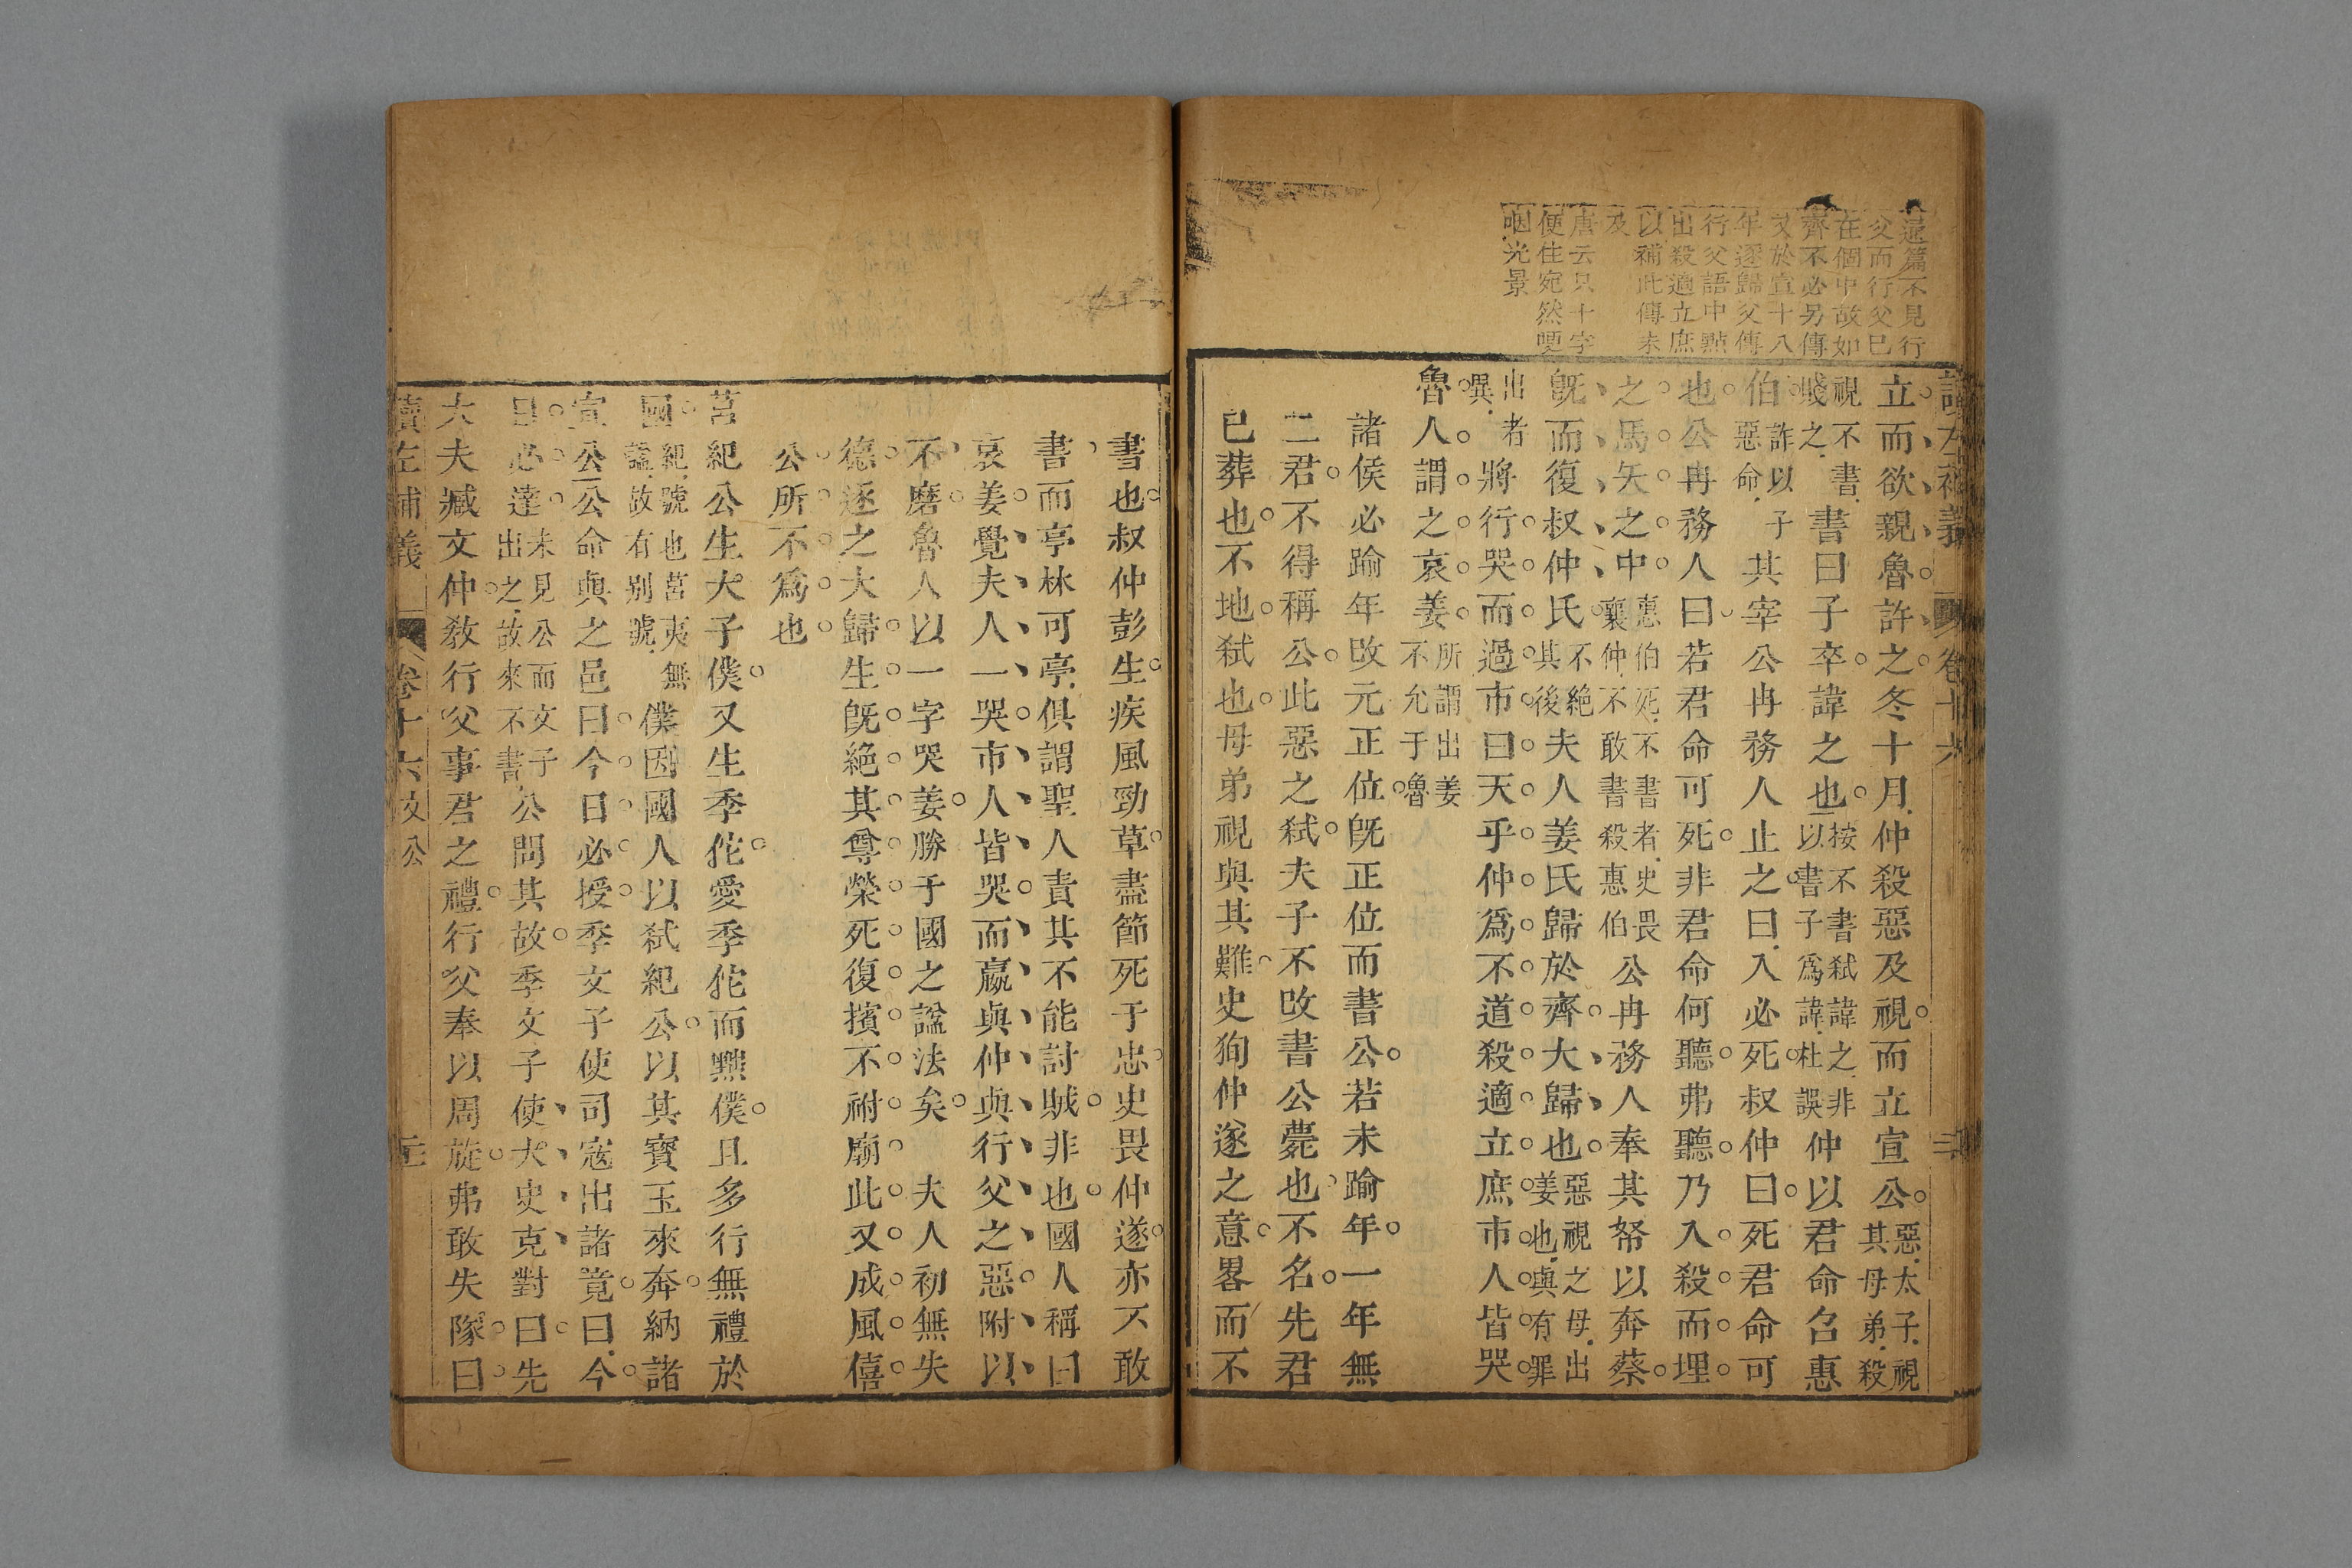 還篇不見行
父而行父已
在個中故如
齊不必另傳
文於宣十八
年逐歸父傳
行父語中點
出殺適立庶
以補此傳未
及
唐云只十字
便住宛然哽
咽光景
讀左補義 卷十六
立而欲親魯許之冬十月仲殺惡及視而立宣公惡太子視其母弟殺
視不書賤之書曰子卒諱之也按不書弑諱之非以書子爲諱杜誤仲以君命召惠
伯詐以子惡命其宰公冉務人止之曰入必死叔仲曰死君命可
也公冉務人曰若君命可死非君命何聽弗聽乃入殺而埋
之馬矢之中惠伯死不書者史畏襄仲不敢書殺惠伯公冉務人奉其帑以奔蔡
旣而復叔仲氏不絕其後夫人姜氏歸於齊大歸也惡視之母出姜也與有罪
出者異將行哭而過市曰天乎仲爲不道殺適立庶市人皆哭
魯人謂之哀姜所謂出姜不允于魯
諸侯必踰年改元正位旣正位而書公若未踰年一年無
二君不得稱公此惡之弑夫子不改書公薨也不名先君
已葬也不地弑也母弟視與其難史狥仲遂之意畧而不
書也叔仲彭生疾風勁草盡節死于忠史畏仲遂亦不敢
書而亭林可亭俱謂聖人責其不能討賊非也國人稱曰
哀姜覺夫人一哭市人皆哭而嬴與仲與行父之惡附以
不磨魯人以一字哭姜勝于國之諡法矣 夫人初無失
德逐之大歸生旣絕其尊榮死復擯不祔廟此又成風僖
公所不爲也
莒紀公生大子僕又生季佗愛季佗而黜僕且多行無禮於
國紀號也莒夷無諡故有别號僕因國人以弑紀公以其寶玉來奔納諸
宣公公命與之邑曰今日必授季文子使司寇出諸竟曰今
日必達未見公而文子出之故來不書公問其故季文子使大史克對曰先
大夫臧文仲教行父事君之禮行父奉以周旋弗敢失隊曰
讀左補義 卷十六 文公